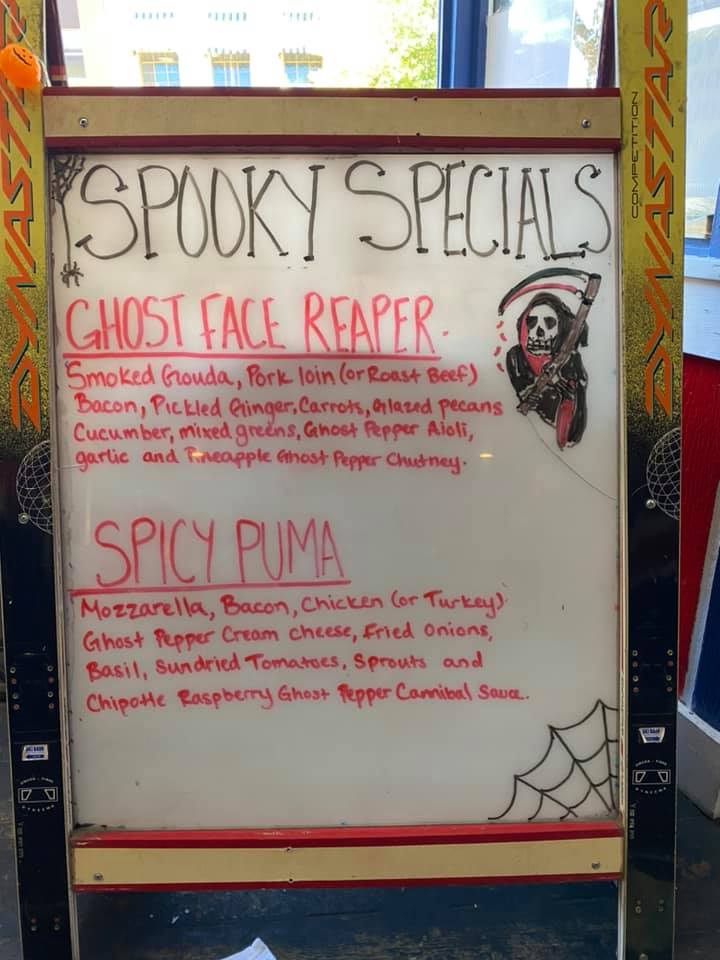 SPOOKY SPECIALS
GHOST FACE REAPER.
Smoked Gouda, Pork loin (or Roast Beef)
Bacon, Pickled Ginger, Carrots, Glazed pecans
Cucumber, mixed greens, Ghost Pepper Aioli,
garlic and Pineapple Ghost Pepper Chutney.
SPICY PUMA
Mozzarella, Bacon, Chicken (or Turkey)
Ghost Pepper Cream cheese, Fried Onions,
Basil, Sundried Tomatoes, Sprouts and
Chipotle Raspberry Ghost Pepper Cannibal Sauce.
DYNASTAR
COMPETITION
DYNASTAR